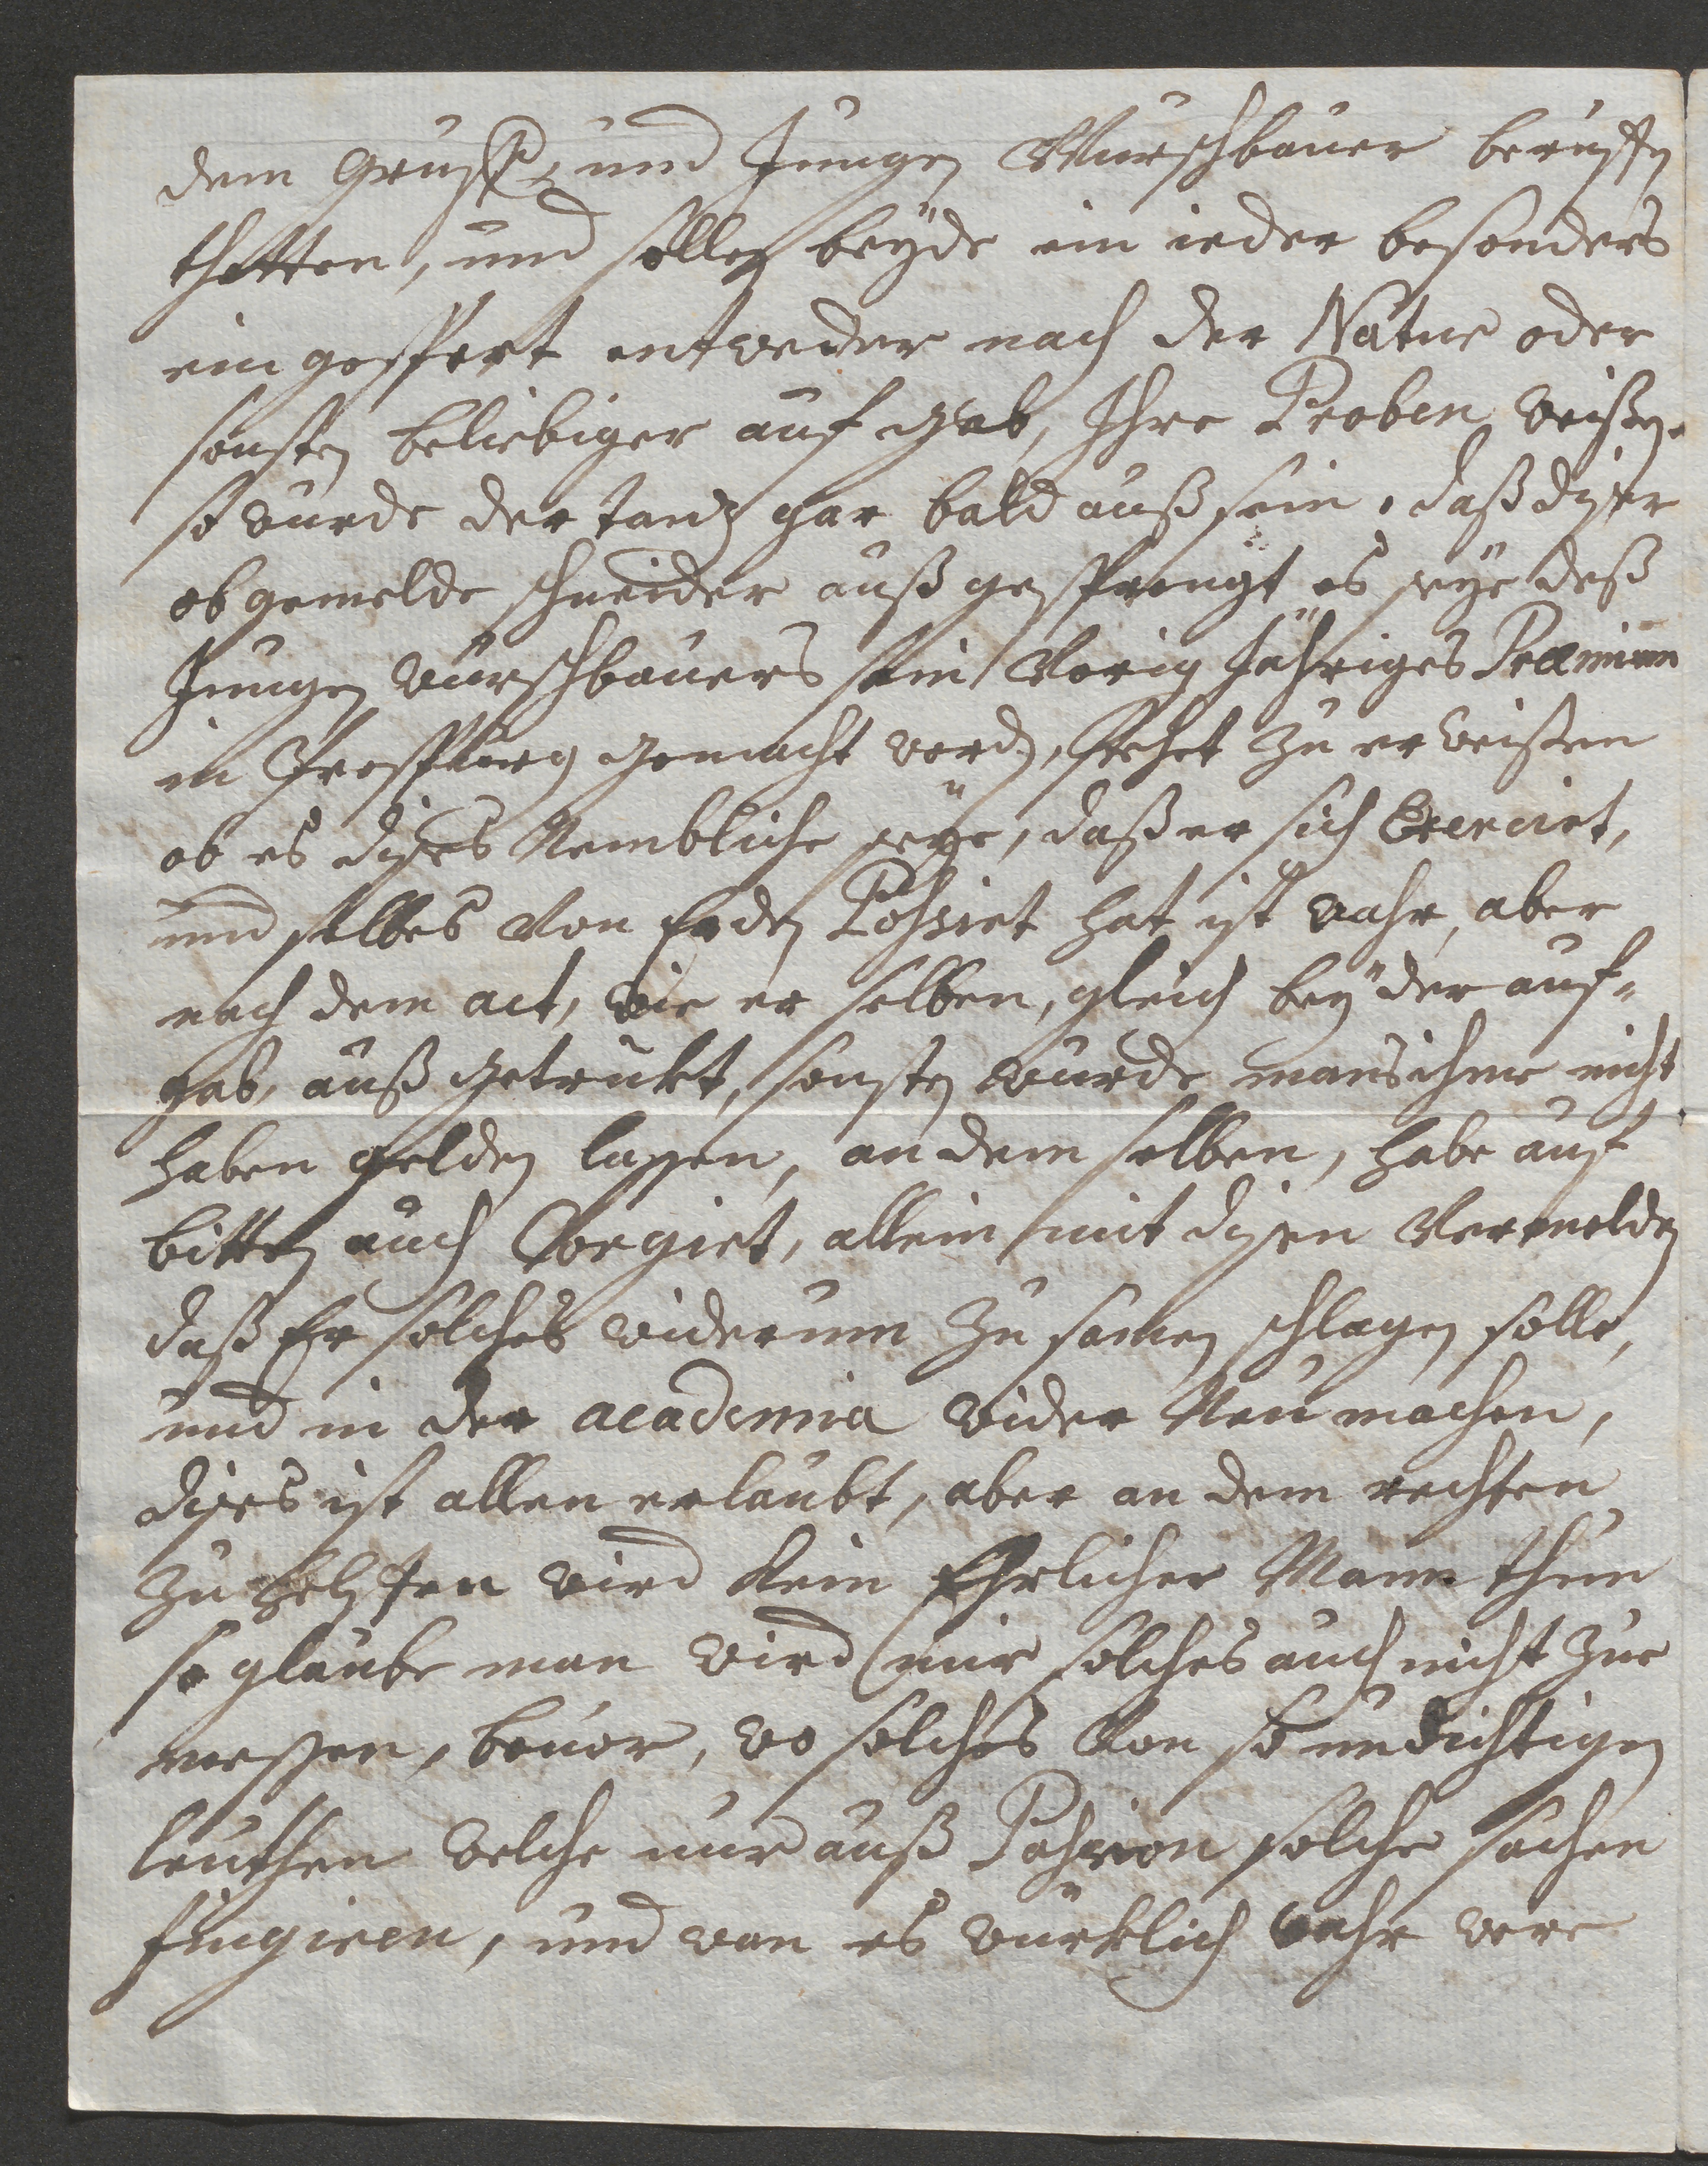 dem Grusse, und Jungen Wurschbauer beruffen
thetten, und sollen beÿde ein ieder besonders
ein gespert entweder nach der Natur oder
sonsten beliebiger auf gab, Ihre Proben weissen.
so wurde der tantz gar bald auß sein. daß diser
obgemelde schneider auß gesprengt es seÿe deß
Jungen wurschbauers sein Vorig Jähriges Præmium
in Presspurg gemacht word, stehet zu erweissen
ob es dises Nembliche seÿe, daß er sich Exercirt,
und selbes Von Erden Pohsirt hat ist wahr, aber
nach dem act, wie er selben, gleich beÿ der auf-
gab, auß getrukt, sonsten wurde mans ihme nicht
haben gelden lassen, an dem selben, habe auf
bitten auch Corgirt, allein mit disen Vermelden
daß Er solches widerum zu samen schlagen solle,
und in der academia wider Neu machen,
dises ist allen erlaubt, aber an dem rechten
zu helffen wird Kein Ehrlicher Mann thun
so glaube man wird mir solches auch nicht zue
messen, beuor, wo solches Von so undichtigen
leuthen welche nur auß Pahsion solche sachen
fingiren, und wan es würklich wahr were